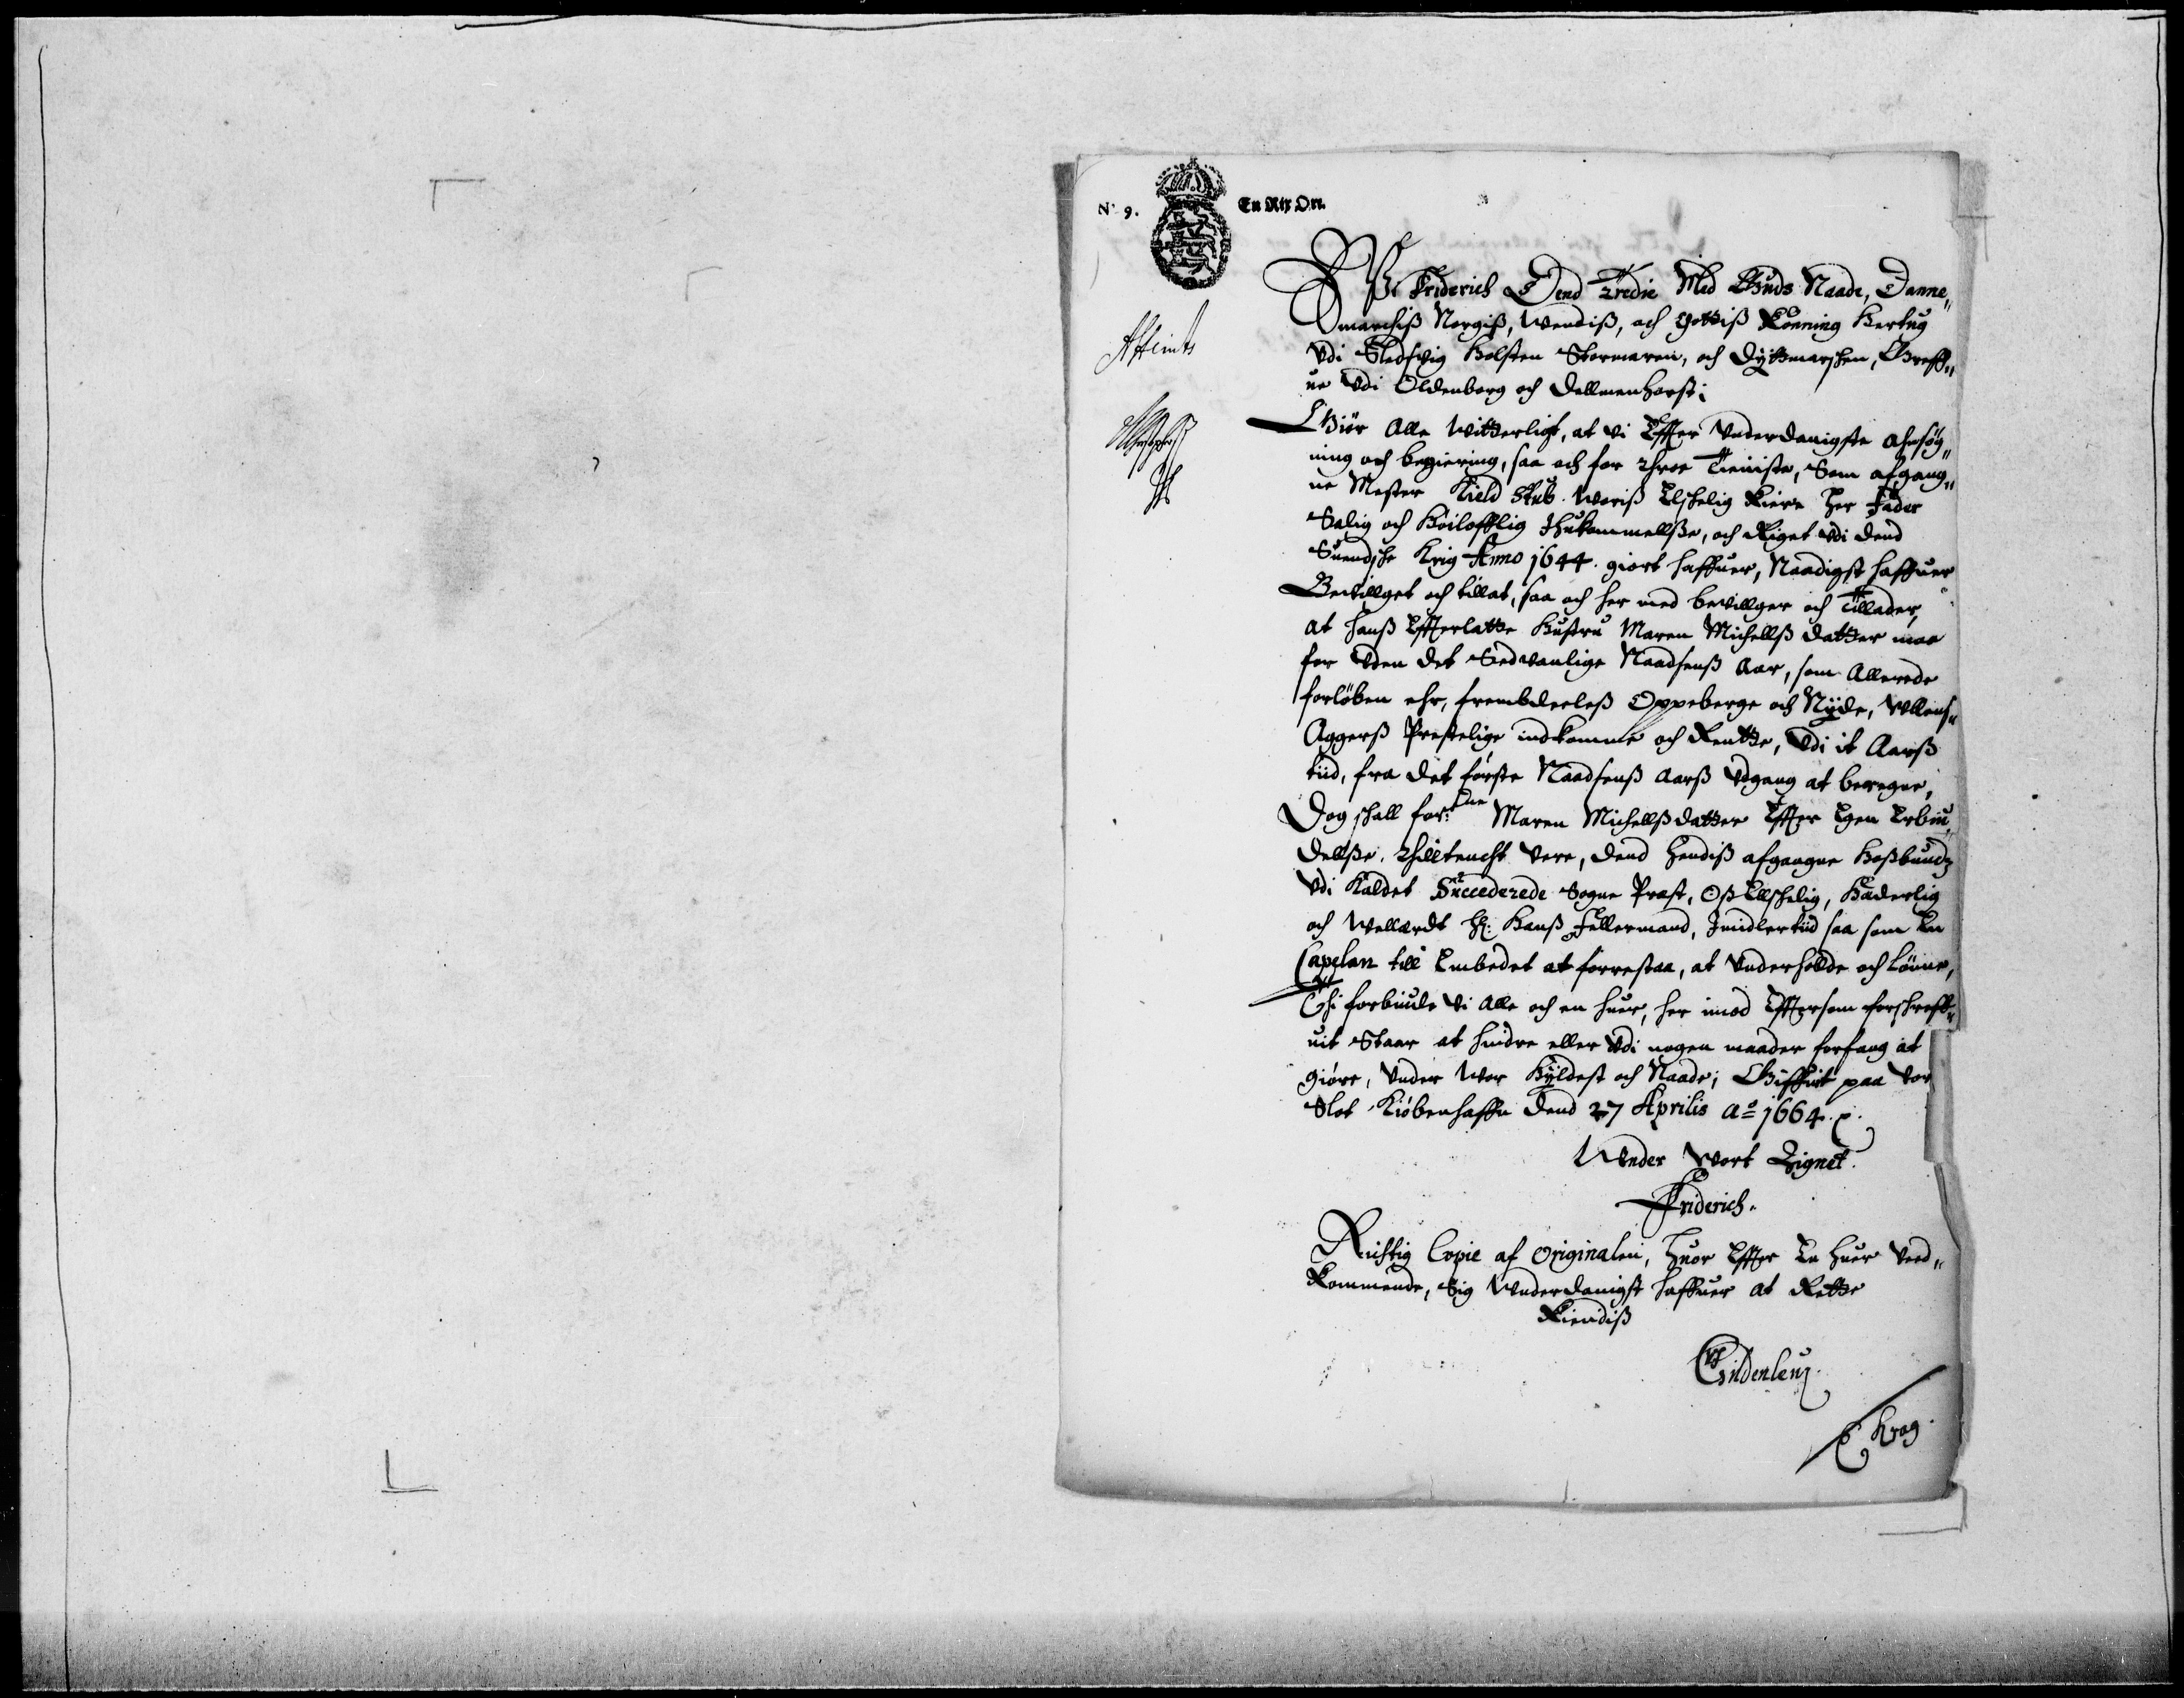 N. 9.
En Rix Ort.
Vi Friderich Dend Tredie Med Guds Naade, Danne„
marchiß Norgiß, Wendiß, och Gottiß Konning Hertug
Vdi Sledsvig Holsten Stormaren, och Dyttmarschen, Greff„
ue Vdi Oldenborg och Dellmenhorst;
Giör Alle Witterligt, at Vi Effter Vnderdanigste ahnsög„
ning och begiering, saa och for throe Tieniste, Som afgang„
ne Mester Kield Stub. Woriß Elskelig Kiere Her Fader
Salig och Höilofflig Ihukommellße, och Riget Vdi dend
Suendsche Krig Anno 1644. giort haffuer, Naadigst haffuer
Bevillget och tillat, saa och her med bevillger och Tillader,
at hanß Effterlatte Hustru Maren Michellß datter maa
for Vden det Sedvanlige Naadsenß Aar, som Allerede
forlöben ehr, frembdeeleß Oppeberge och Nyde, Wllens„
Aggerß Prestelige indkomme och Rentte, Vdi it Aarß
tiid, fra det förste Naadsenß Aarß Vdgang at beregne,
Dog schall for:dne Maren Michellßdatter Effter Egen Erbiu„
dellße, thilltencht Vere, dend hendiß afgangne Hoßbundz
Vdi Kaldet Succederede Sogne Prest, Oß Elschelig, Hæderlig
och Wellærdt Hr: Hanß Fellermand, Imidlertiid saa som En
Capelan till Embedet at forrestaa, at Vnderholde och lönne,
Thi forbiude Vi Alle och en huer, her imod Efftersom forschreff„
uit Staar at hindre eller Vdi nogen maader forfang at
giöre, Vnder Wor Hyldest och Naade; Giffuit paa Vor
Slot Kiöbenhaffn dend 27 Aprilis Aº 1664.
Vnder Wort Zignet.
Friderich.
Richtig Copie af Originalen, huor Effter En huer Ved„
kommende, Sig Vnderdanigst haffuer at Rette
Kiendiß
Gildenleu
Krag